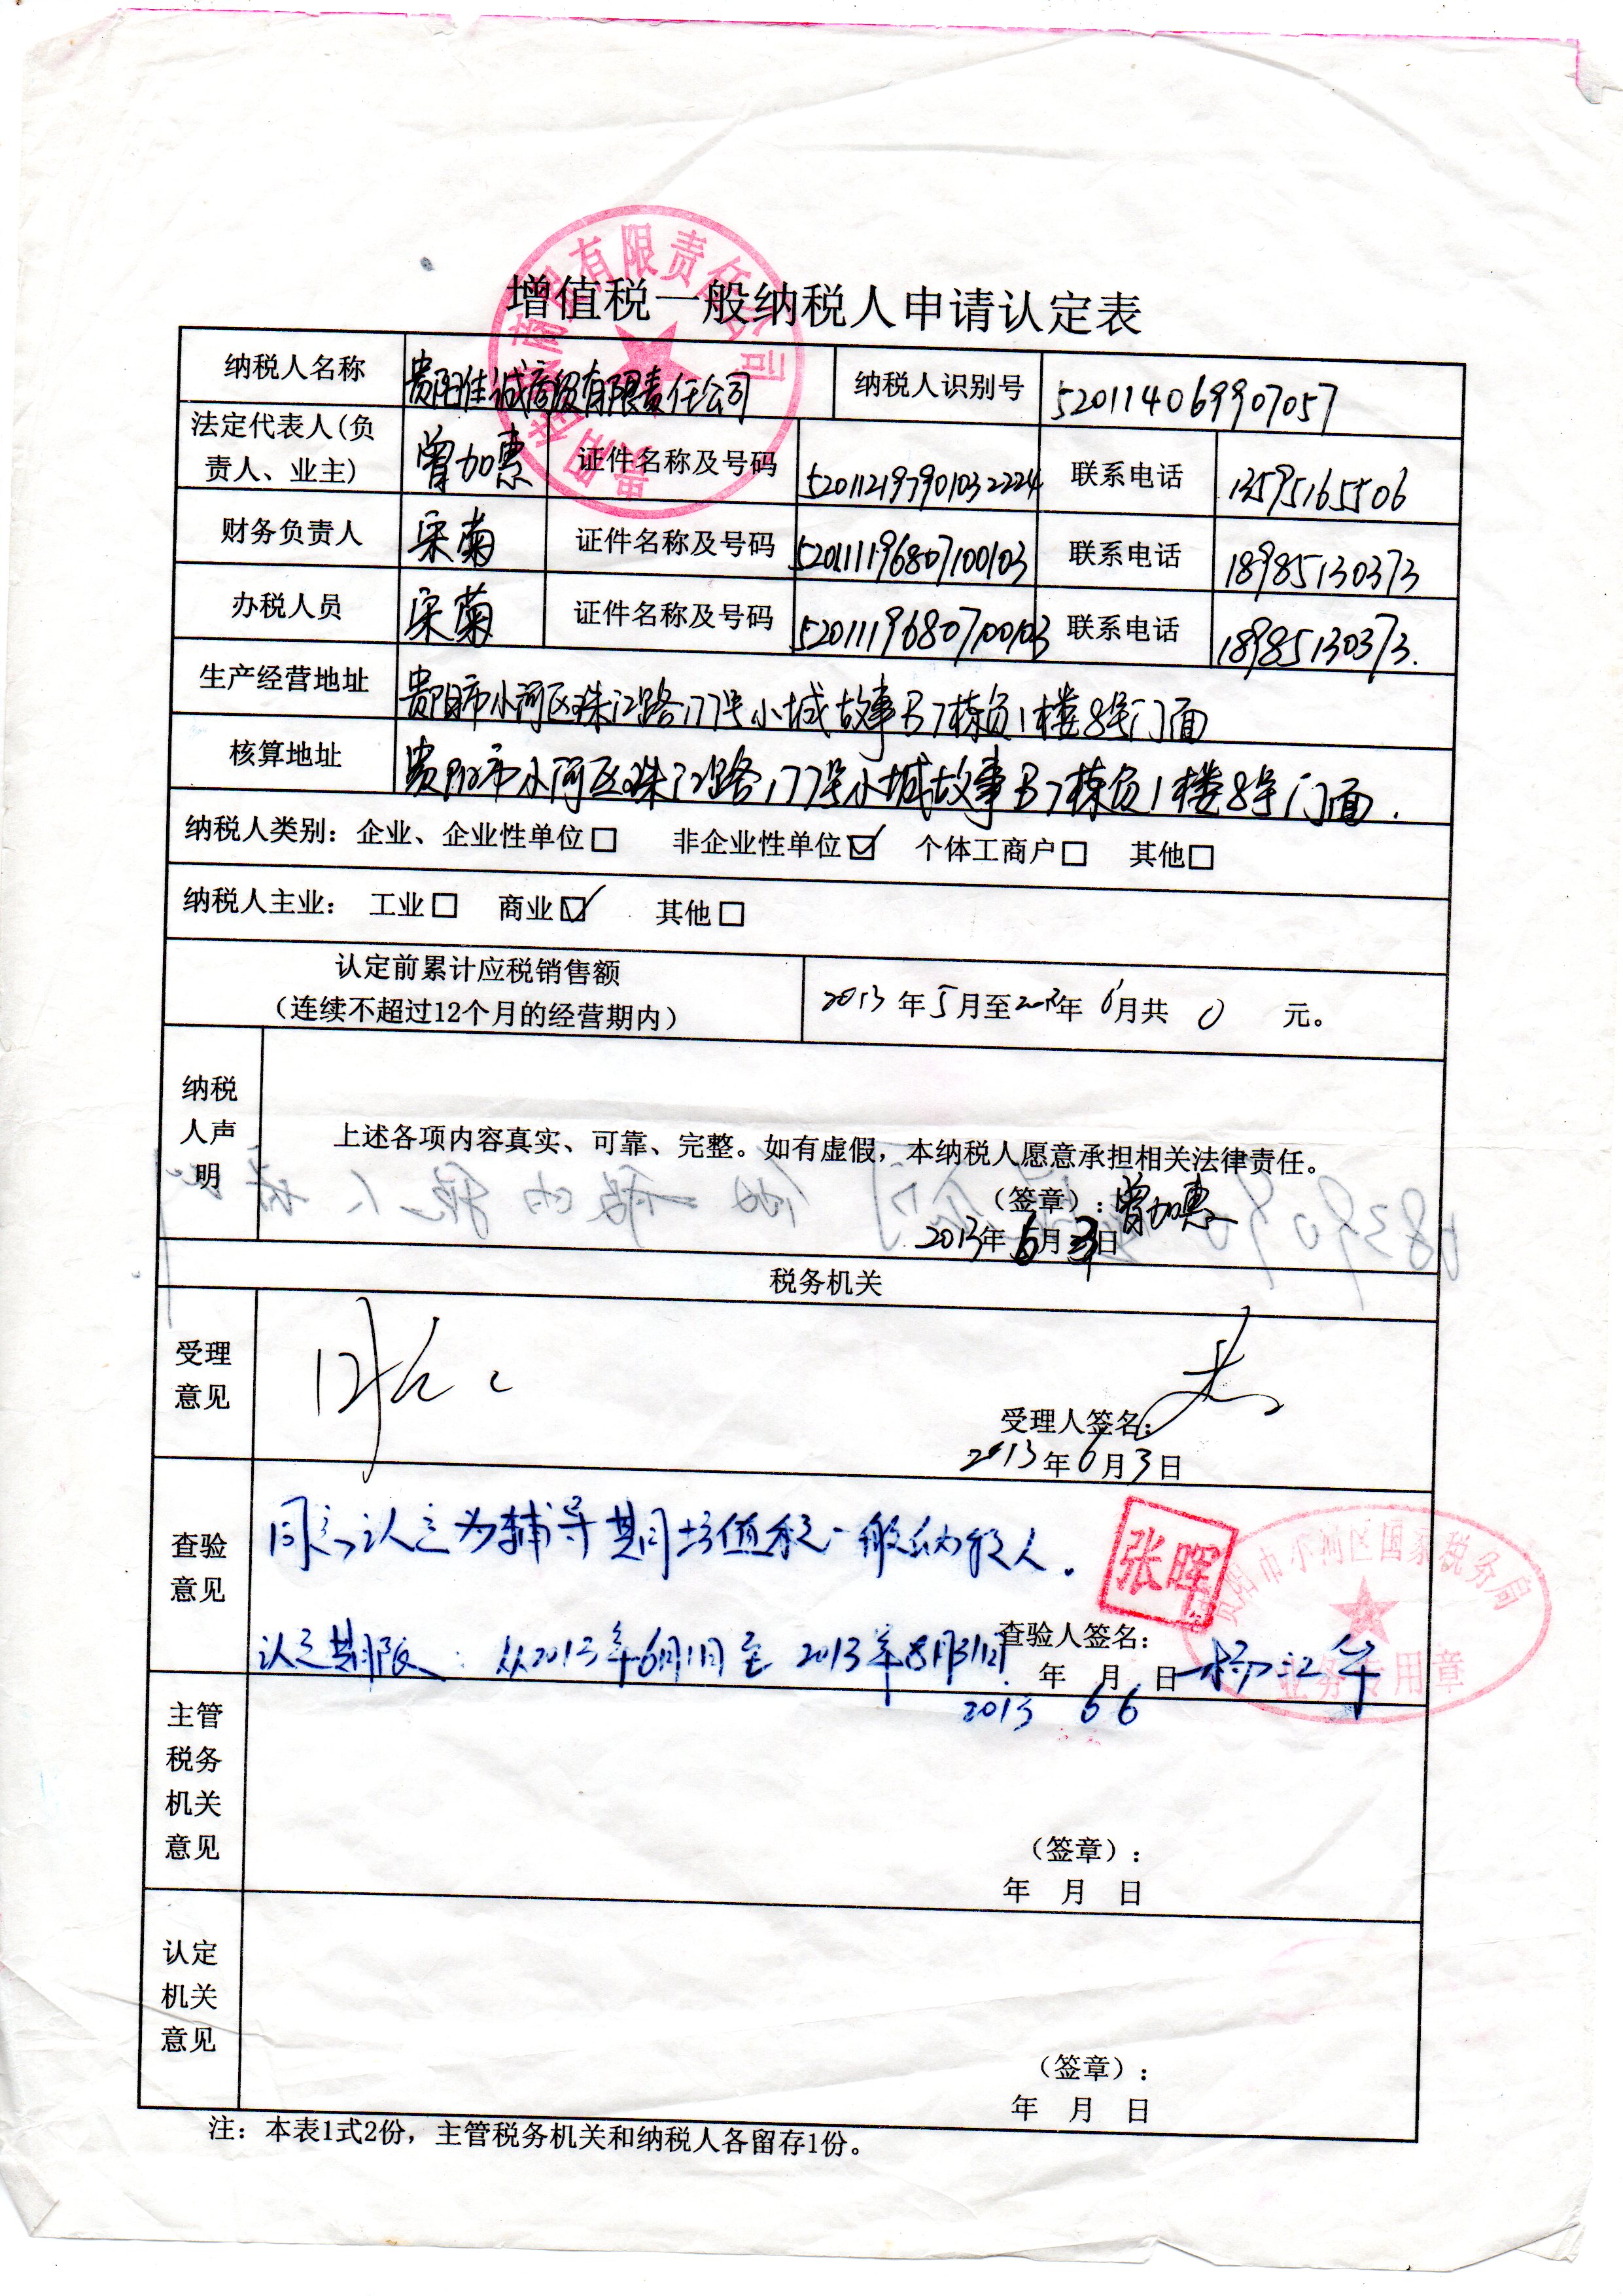 增值税一般纳税人申请认定表
纳税人名称 贵阳佳诚商贸有限责任公司 纳税人识别号 520114069907057
法定代表人(负责人、业主) 曾加惠 证件名称及号码 520112197901032224 联系电话 13595165506
财务负责人 宋菊 证件名称及号码 520111196807100103 联系电话 18985130373
办税人员 宋菊 证件名称及号码 520111196807100103 联系电话 18985130373.
生产经营地址 贵阳市小河区珠江路177号小城故事B7栋负1楼8号门面
核算地址 贵阳市小河区珠江路177号小城故事B7栋负1楼8号门面.
纳税人类别: 企业、企业性单位□ 非企业性单位☑ 个体工商户□ 其他□
纳税人主业: 工业□ 商业☑ 其他□
认定前累计应税销售额
(连续不超过12个月的经营期内) 2013年5月至2013年6月共 0 元。
纳税人声明
上述各项内容真实、可靠、完整。如有虚假,本纳税人愿意承担相关法律责任。
(签章): 曾加惠
2013年6月3日
税务机关
受理意见
受理人签名:
2013年6月3日
查验意见
同意认定为辅导期增值税一般纳税人。
张晖
认定期限: 从2013年6月1日至2013年8月31日
查验人签名: 杨江华
年 月 日
2013 6 6
贵阳市小河区国家税务局
业务专用章
主管税务机关意见
(签章):
年 月 日
认定机关意见
(签章):
年 月 日
注: 本表1式2份,主管税务机关和纳税人各留存1份。